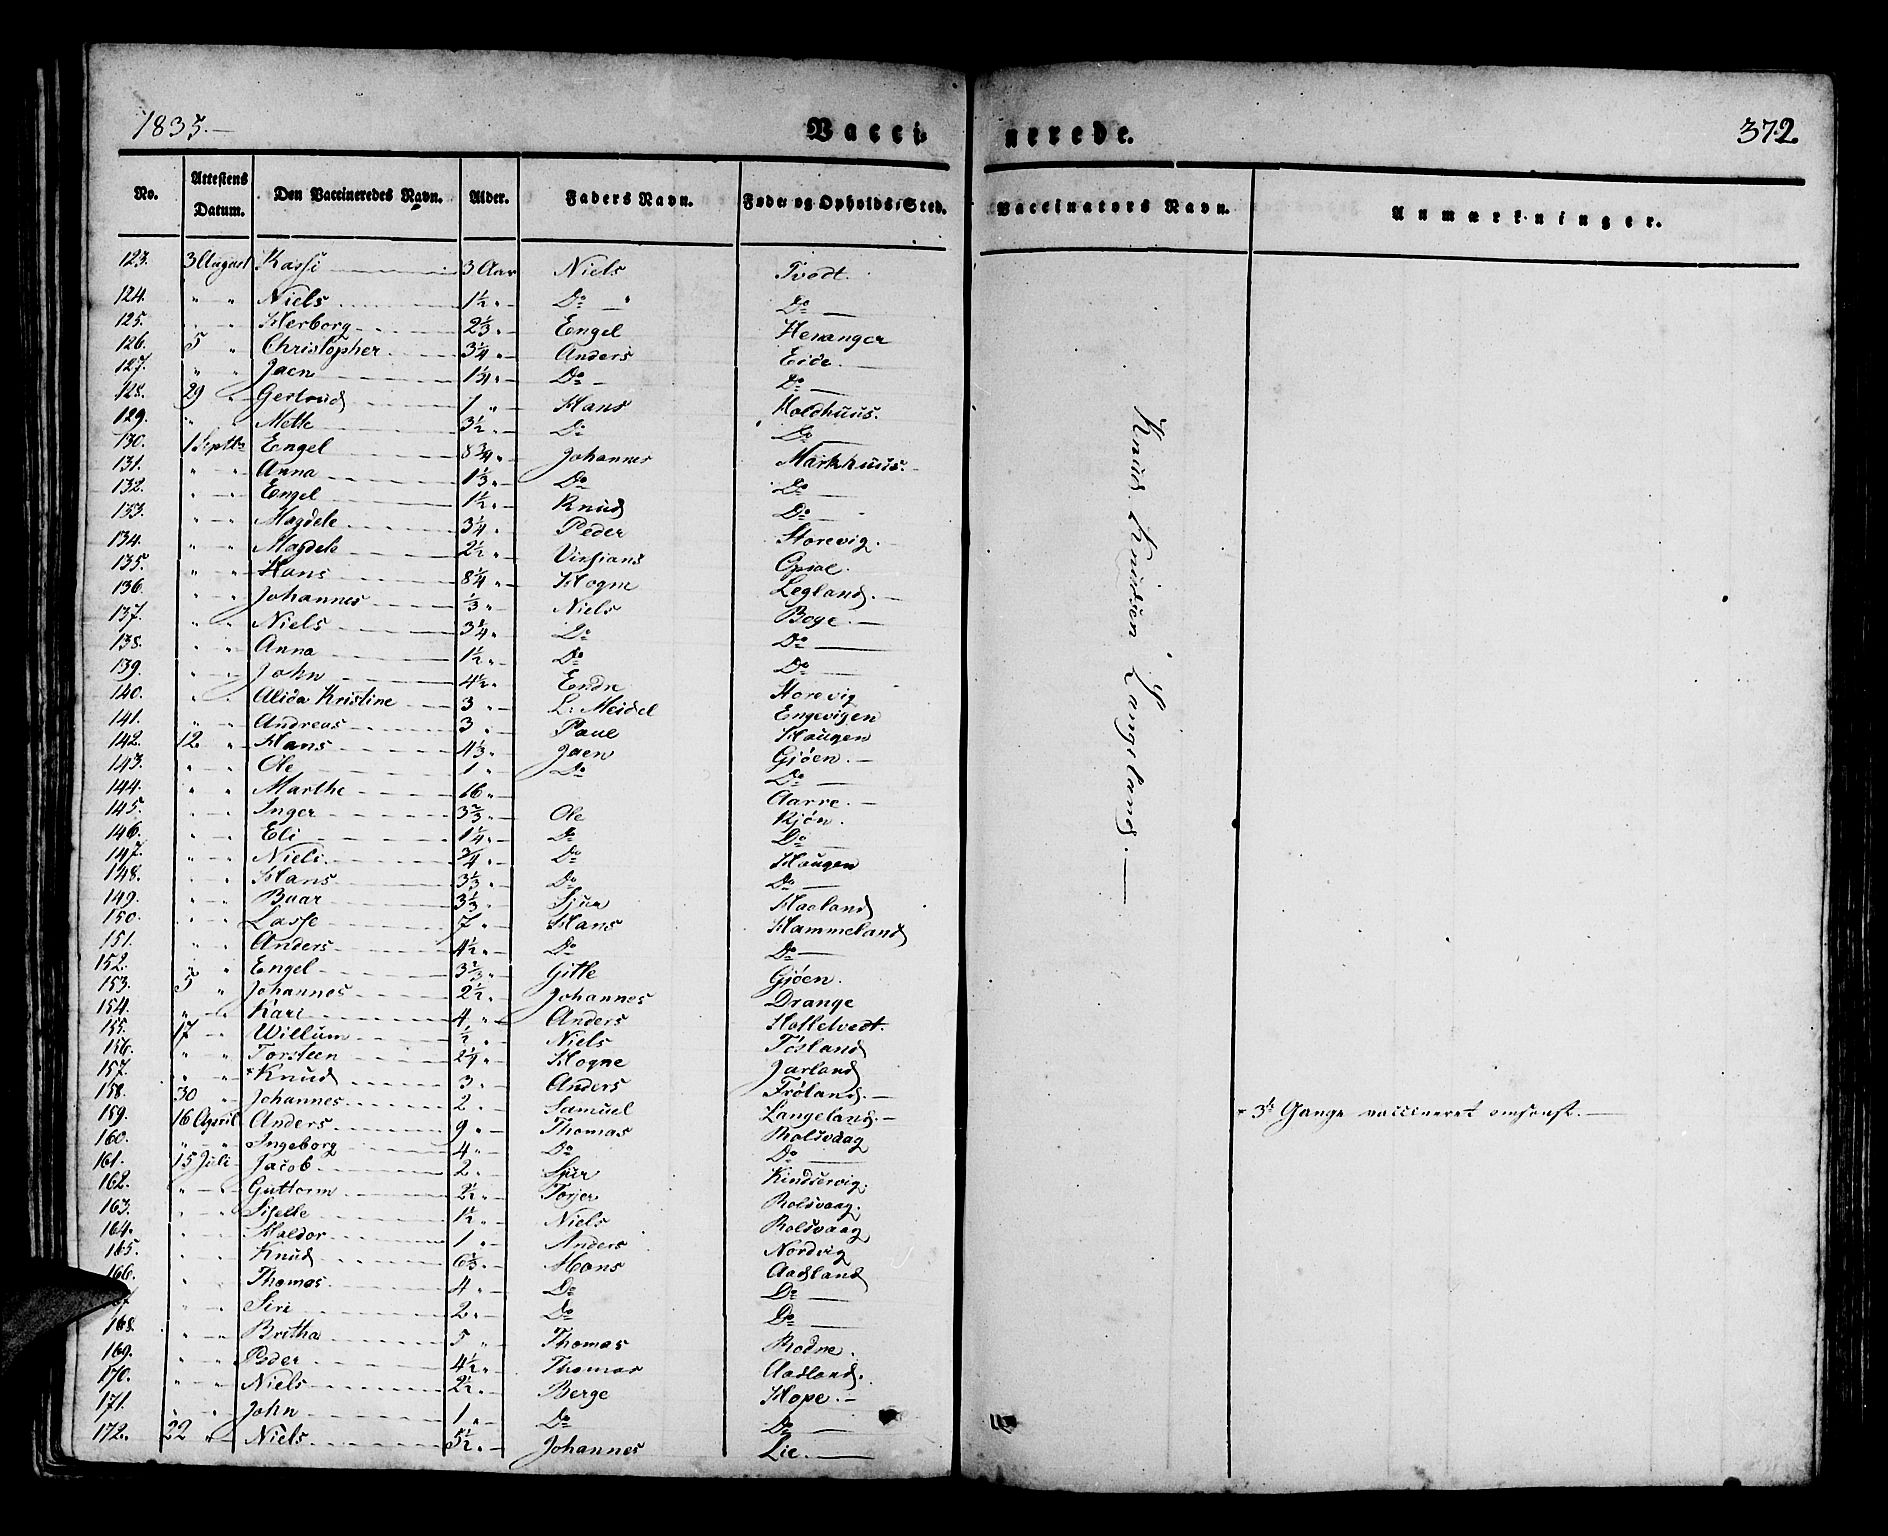 1835.—
Vacci-
nerede.
372.
No. Attestens Datum. Den Vaccineredes Navn. Alder. Faders Navn. Føde- og Opholds-Sted. Vaccinators Navn. Anmærkninger.
123. 3 August Kassi 3 Aar Niels Tvedt.
124. " " Niels 1½ " Do " Do
125. " " Herborg 2⅓ " Engel Heranger
126. 5 " Christopher 3¼ " Anders Eide.
127. " " Jaen 1¾ " Do Do
128. 29 " Gertrud 1 " Hans Holdhuus.
129. " " Mette 3½ " Do Do
130. 1 Septbr Engel 8¾ " Johannes Markhuus.
131. " " Anna 1⅓ " Do Do
132. " " Engel 1½ " Knud Do
133. " " Magdele 3¼ " Peder Storevig.
134. " " Magdele 2½ " Opsal.
135. " " Hans 8¼ " Hogne Legland.
136. " " Johannes ⅓ " Niels Boge.
137. " " Niels 3¼ " Do Do
138. " " Anna 1½ " Do Do
139. " " John 4½ " Endre Storevig
140. " " Alida Kristine 3 " L: Meidel Engevigen
141. " " Andreas 3 " Paul Haugen
142. 12 " Hans 4⅓ " Jaen Gjøen.
143. " " Ole 1 " Do Do
144. " " Marthe 16 " Aarre.
145. " " Inger 3⅔ " Ole Kjøn.
146. " " Eli 1¼ " Do Do
147. " " Niels ¾ " Do Haugen
148. " " Hans 3⅓ " Do Do
149. " " Baar 3⅓ " Sjur Haaland
150. " " Lasse 7 " Hans Hammeland
151. " " Anders 4½ " Do Do
152. " " Engel 3⅔ " Gitle Gjøen.
153. 5 " Johannes 2½ " Johannes Drange
154. " " Kari 4 " Anders
155. 17 " Willum ½ " Niels Tøsland
156. " " Torsteen 2¼ " Hogne Jarland
157. " " *Knud 3 " Anders Frøland.
158. 30 " Johannes 2 " Samuel Langeland
159. 16 April Anders 9 " Thomas Roldvaag
160. " " Ingeborg 4 " Do Do
161. 15 Juli Jacob 2 " Sjur Kindservig.
162. " " Guttorm 2½ " Torjer Roldvaag.
163. " " Siselle 1½ " Niels Roldvaag
164. " " Haldor 1 " Anders Nordvig
165. " " Knud 6⅓ " Mons Aadland
166. " " Thomas 4 " Do Do
" " Siri 2 " Do Do
168. " " Britha 5 " Thomas Rodne.
169. " " Peder 4½ " Thomas Aadland.
170. " " Niels 2½ " Berge Hope.
171. " " John 1 " Do Do
172. 22 " Niels 5½ " Johannes Lie.
Knud Knudsen Langeland.—
* 3de Gange vaccineret omsonst.—